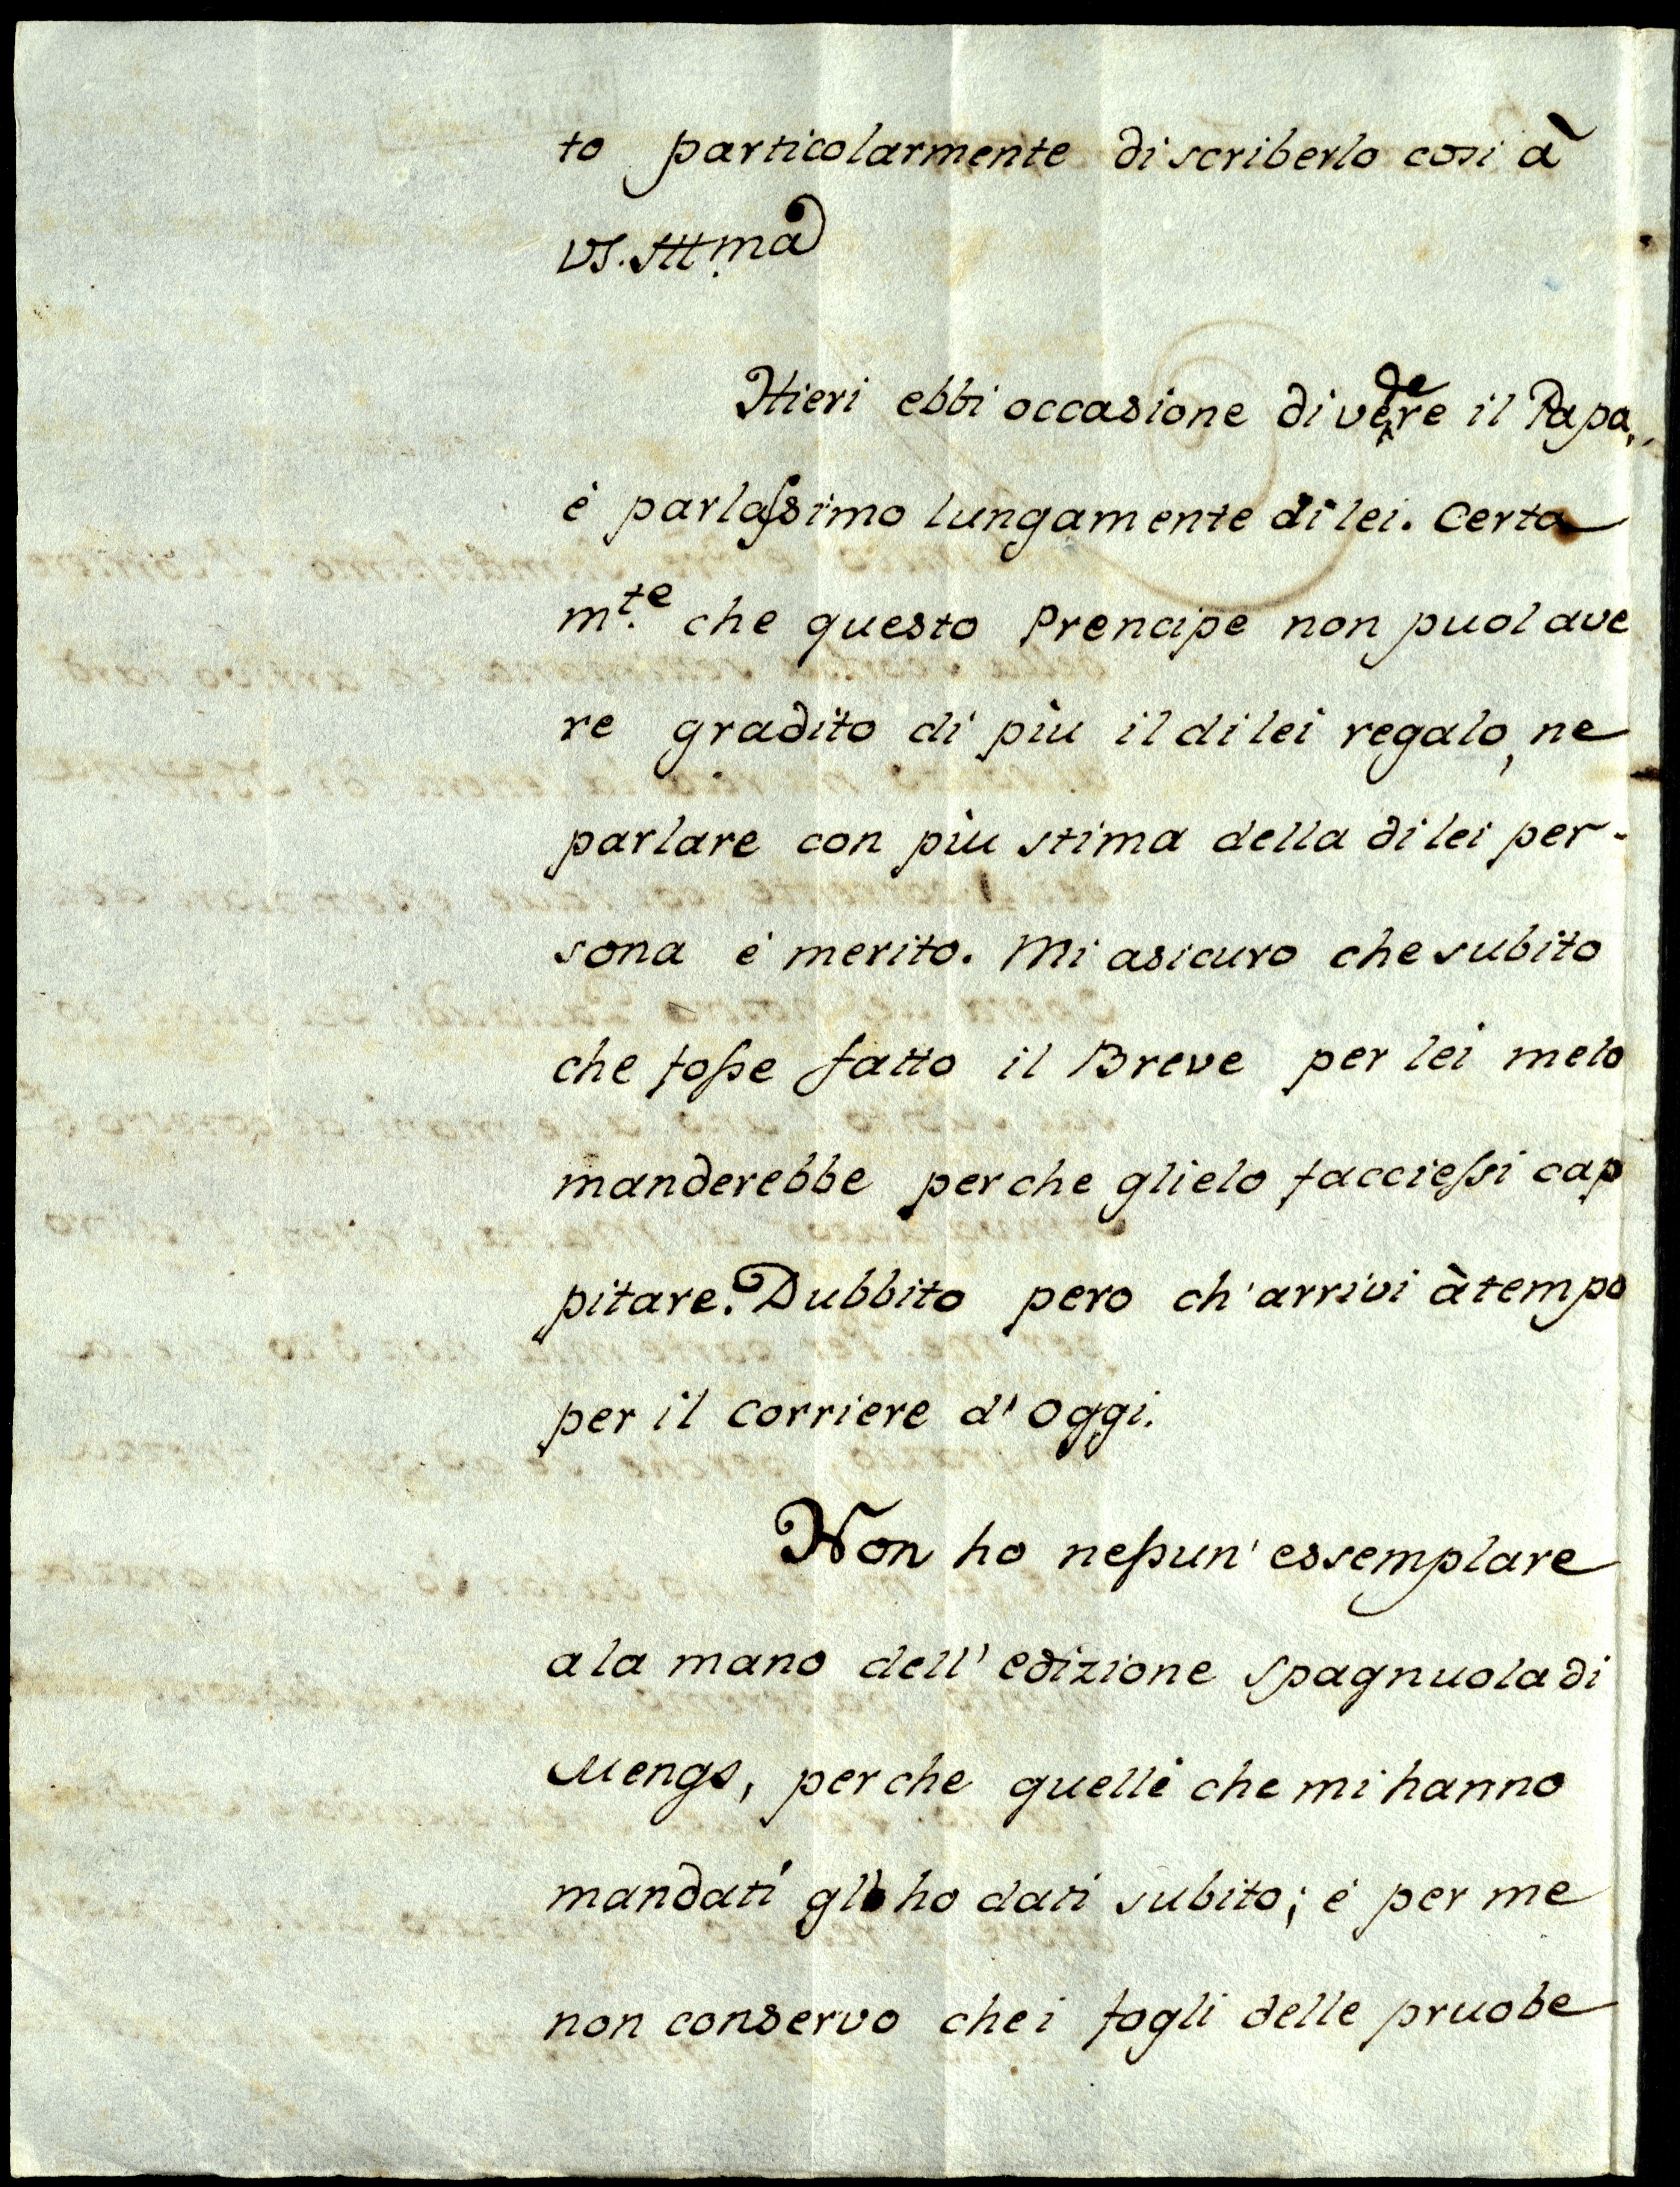 to particolarmente di scriberlo cosi à
VS. Illma
Hieri ebbi occasione di vedere il Papa,
è parlassimo lungamente di lei. Certa
mte. che questo Prencipe non puol ave
re gradito di più il di lei regalo, ne
parlare con più stima della di lei per-
sona è merito. Mi asicuro che subito
che fosse fatto il Breve per lei melo
manderebbe perche glielo facciessi cap
pitare. Dubbito pero ch'arrivi à tempo
per il corriere d'oggi.
Non ho nessun' essemplare
a la mano dell' edizione spagnuola di
Mengs, perche quelli che mi hanno
mandati gli ho dati subito; è per me
non conservo che i fogli delle pruobe